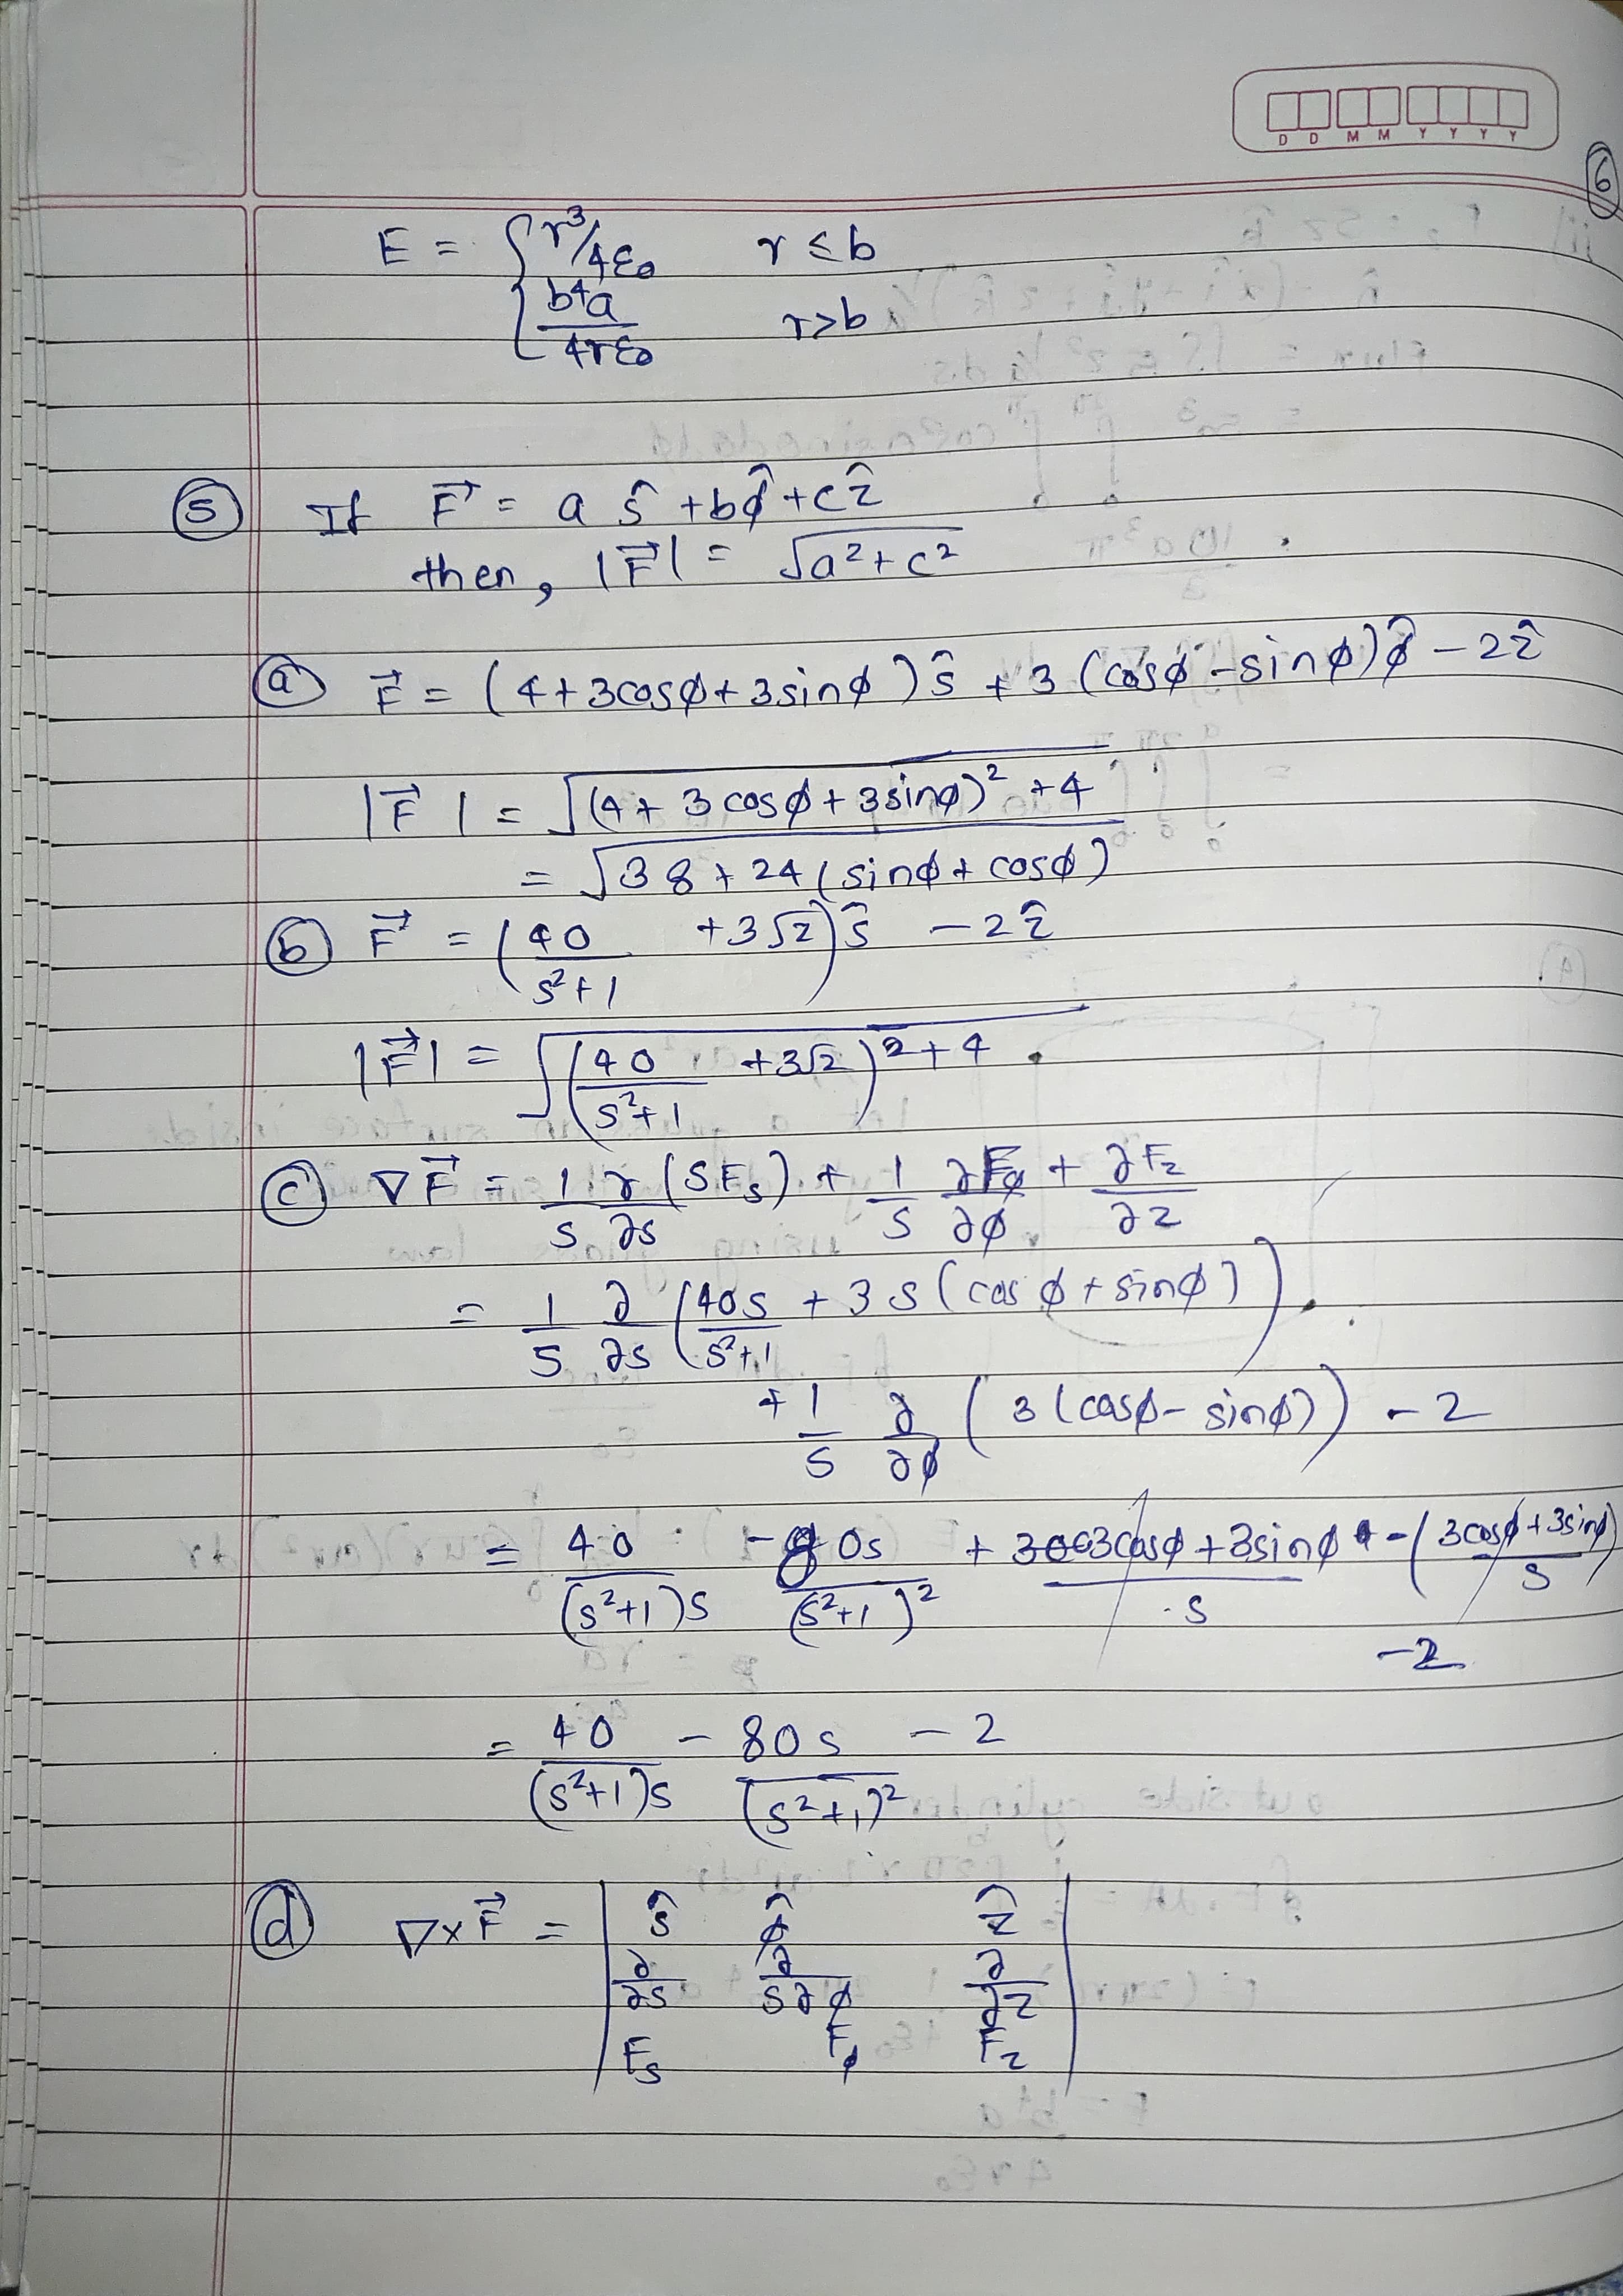 D D M M Y Y Y Y
6
E = { r³/4ε₀   r ≤ b
b⁴a/4rε₀   r > b
⑤ If F⃗ = a ŝ + bφ̂ + cẑ
then, |F⃗| = √(a² + c²)
ⓐ F⃗ = (4 + 3cosφ + 3sinφ) ŝ + 3 (cosφ - sinφ) φ̂ - 2ẑ
|F⃗| = √((4 + 3cosφ + 3sinφ)² + 4)
= √(38 + 24 (sinφ + cosφ)
ⓑ F⃗ = (40/(s²+1) + 3√2) ŝ - 2ẑ
|F⃗| = √((40/(s²+1) + 3√2)² + 4)
ⓒ ∇F⃗ = 1/s ∂/∂s (SFₛ) + 1/s ∂Fφ/∂φ + ∂F_z/∂z
= 1/s ∂/∂s (40s/(s²+1) + 3s (cosφ + sinφ))
+ 1/s ∂/∂φ (3(cosφ - sinφ)) - 2
= 40/((s²+1)s) - 80s/(s²+1)² + 3cosφ + 3sinφ/s - (3cosφ + 3sinφ/s)
-2
= 40/((s²+1)s) - 80s/(s²+1)² - 2
ⓓ ∇×F⃗ = | ŝ φ̂ ẑ |
| ∂/∂s ∂/s∂φ ∂/∂z |
| Fₛ Fφ F_z |